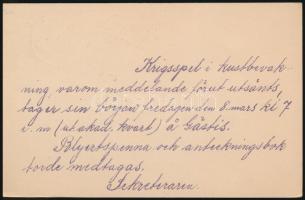 Krigsspel i kustbevak-
ning, varom meddelande förut utsänts,
tager sin början fredagen den 8 mars kl 7
e. m. (ut akad. kvart) å Gästis.
Blyertspenna och anteckningsbok
torde medtagas.
Sekreteraren.